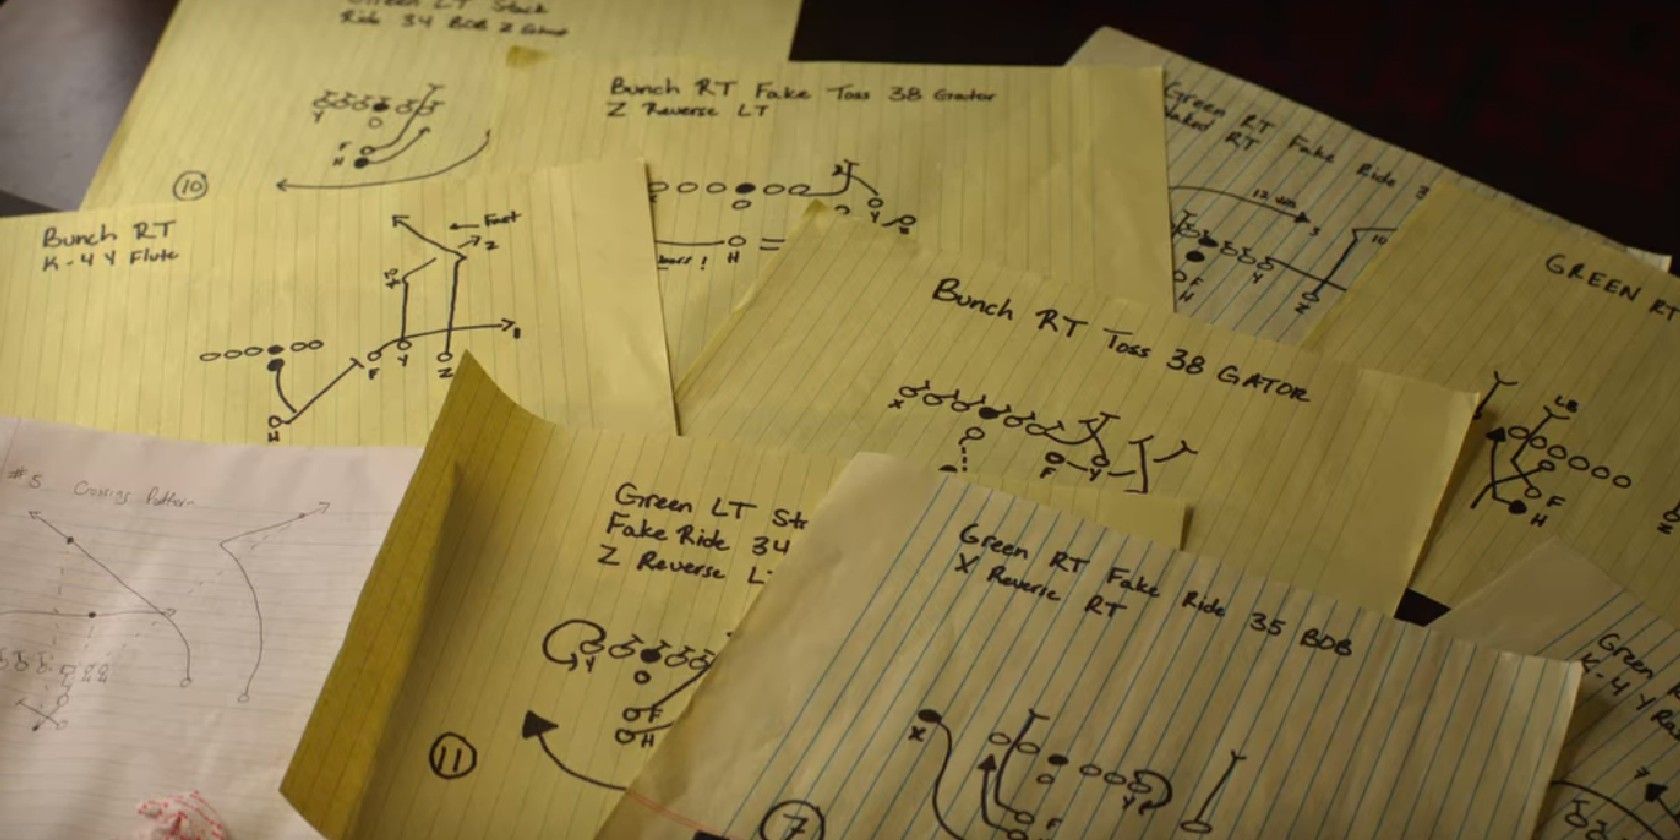 Green LT Stack
Ride 34 BOB Z
Y
F
H
10
Bunch RT Fake Toss 38 Gator
Z Reverse LT
Y
H
Green RT Fake Ride 3
Naked RT
Y
F
H
Z
10
GREEN RT
LB
F
H
Z
Bunch RT
K-44 Flute
Fast
Z
F
Y
Z
H
Bunch RT Toss 38 GATOR
X
F
Y
#5 Crossing Pattern
Green LT Str
Fake Ride 34
Z Reverse L
Y
F
H
11
Green RT Fake Ride 35 BOB
X Reverse RT
X
Y
F
7
Green
K-4 Y